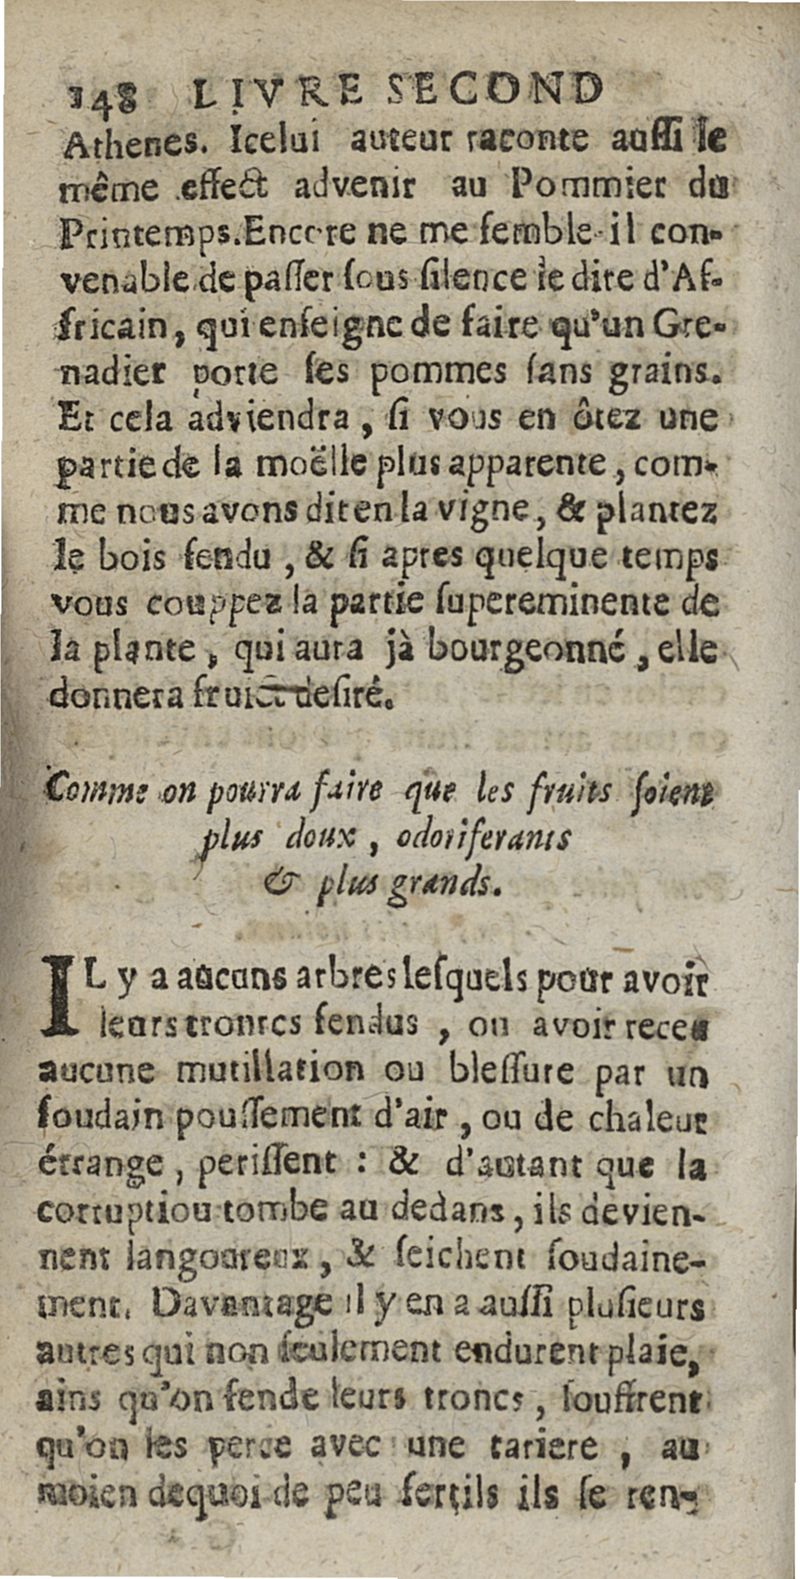 148 LIVRE SECOND
Athenes. Icelui auteur raconte aussi le
même effect advenir au Pommier du
Printemps. Encore ne me semble-il con-
venable de passer sous silence le dire d'Af-
fricain, qui enseigne de faire qu'un Gre-
nadier porte ses pommes sans grains.
Et cela adviendra, si vous en ôtez une
partie de la moëlle plus apparente, com-
me nous avons dit en la vigne, & plantez
le bois fendu, & si apres quelque temps
vous couppez la partie supereminente de
la plante, qui aura jà bourgeonné, elle
donnera fruict desiré.
Comme on pourra faire que les fruits soient
plus doux, odoriferants
& plus grands.
IL y a aucuns arbres lesquels pour avoir
leurs troncs fendus, ou avoir receu
aucune mutillation ou blessure par un
soudain poussement d'air, ou de chaleur
étrange, perissent : & d'autant que la
corruptiou tombe au dedans, ils devien-
nent langoureux, & seichent soudaine-
ment. Davantage il y en a aussi plusieurs
autres qui non seulement endurent plaie,
ains qu'on fende leurs troncs, souffrent
qu'on les perce avec une tariere, au
moien dequoi de peu fertils ils se ren-